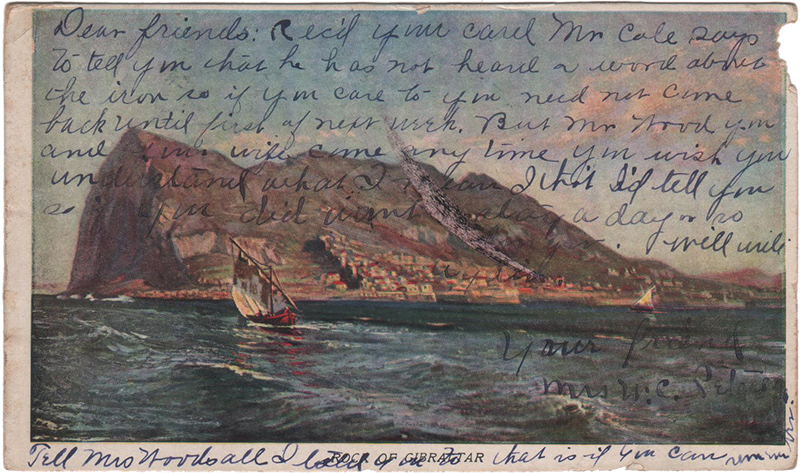 Dear friends: Rec'd your card Mr Cale says
to tell you that he has not heard a word about
the iron so if you care to you need not come
back until first of next week. But Mr Wood you
and your wife come any time you wish you
understand what I mean I thot I'd tell you
so if you did want to stay a day or so
you. will will
Your friend
Mrs W.C.
ROCK OF GIBRALTAR
Tell Mrs Woods all I told you to that is if you can